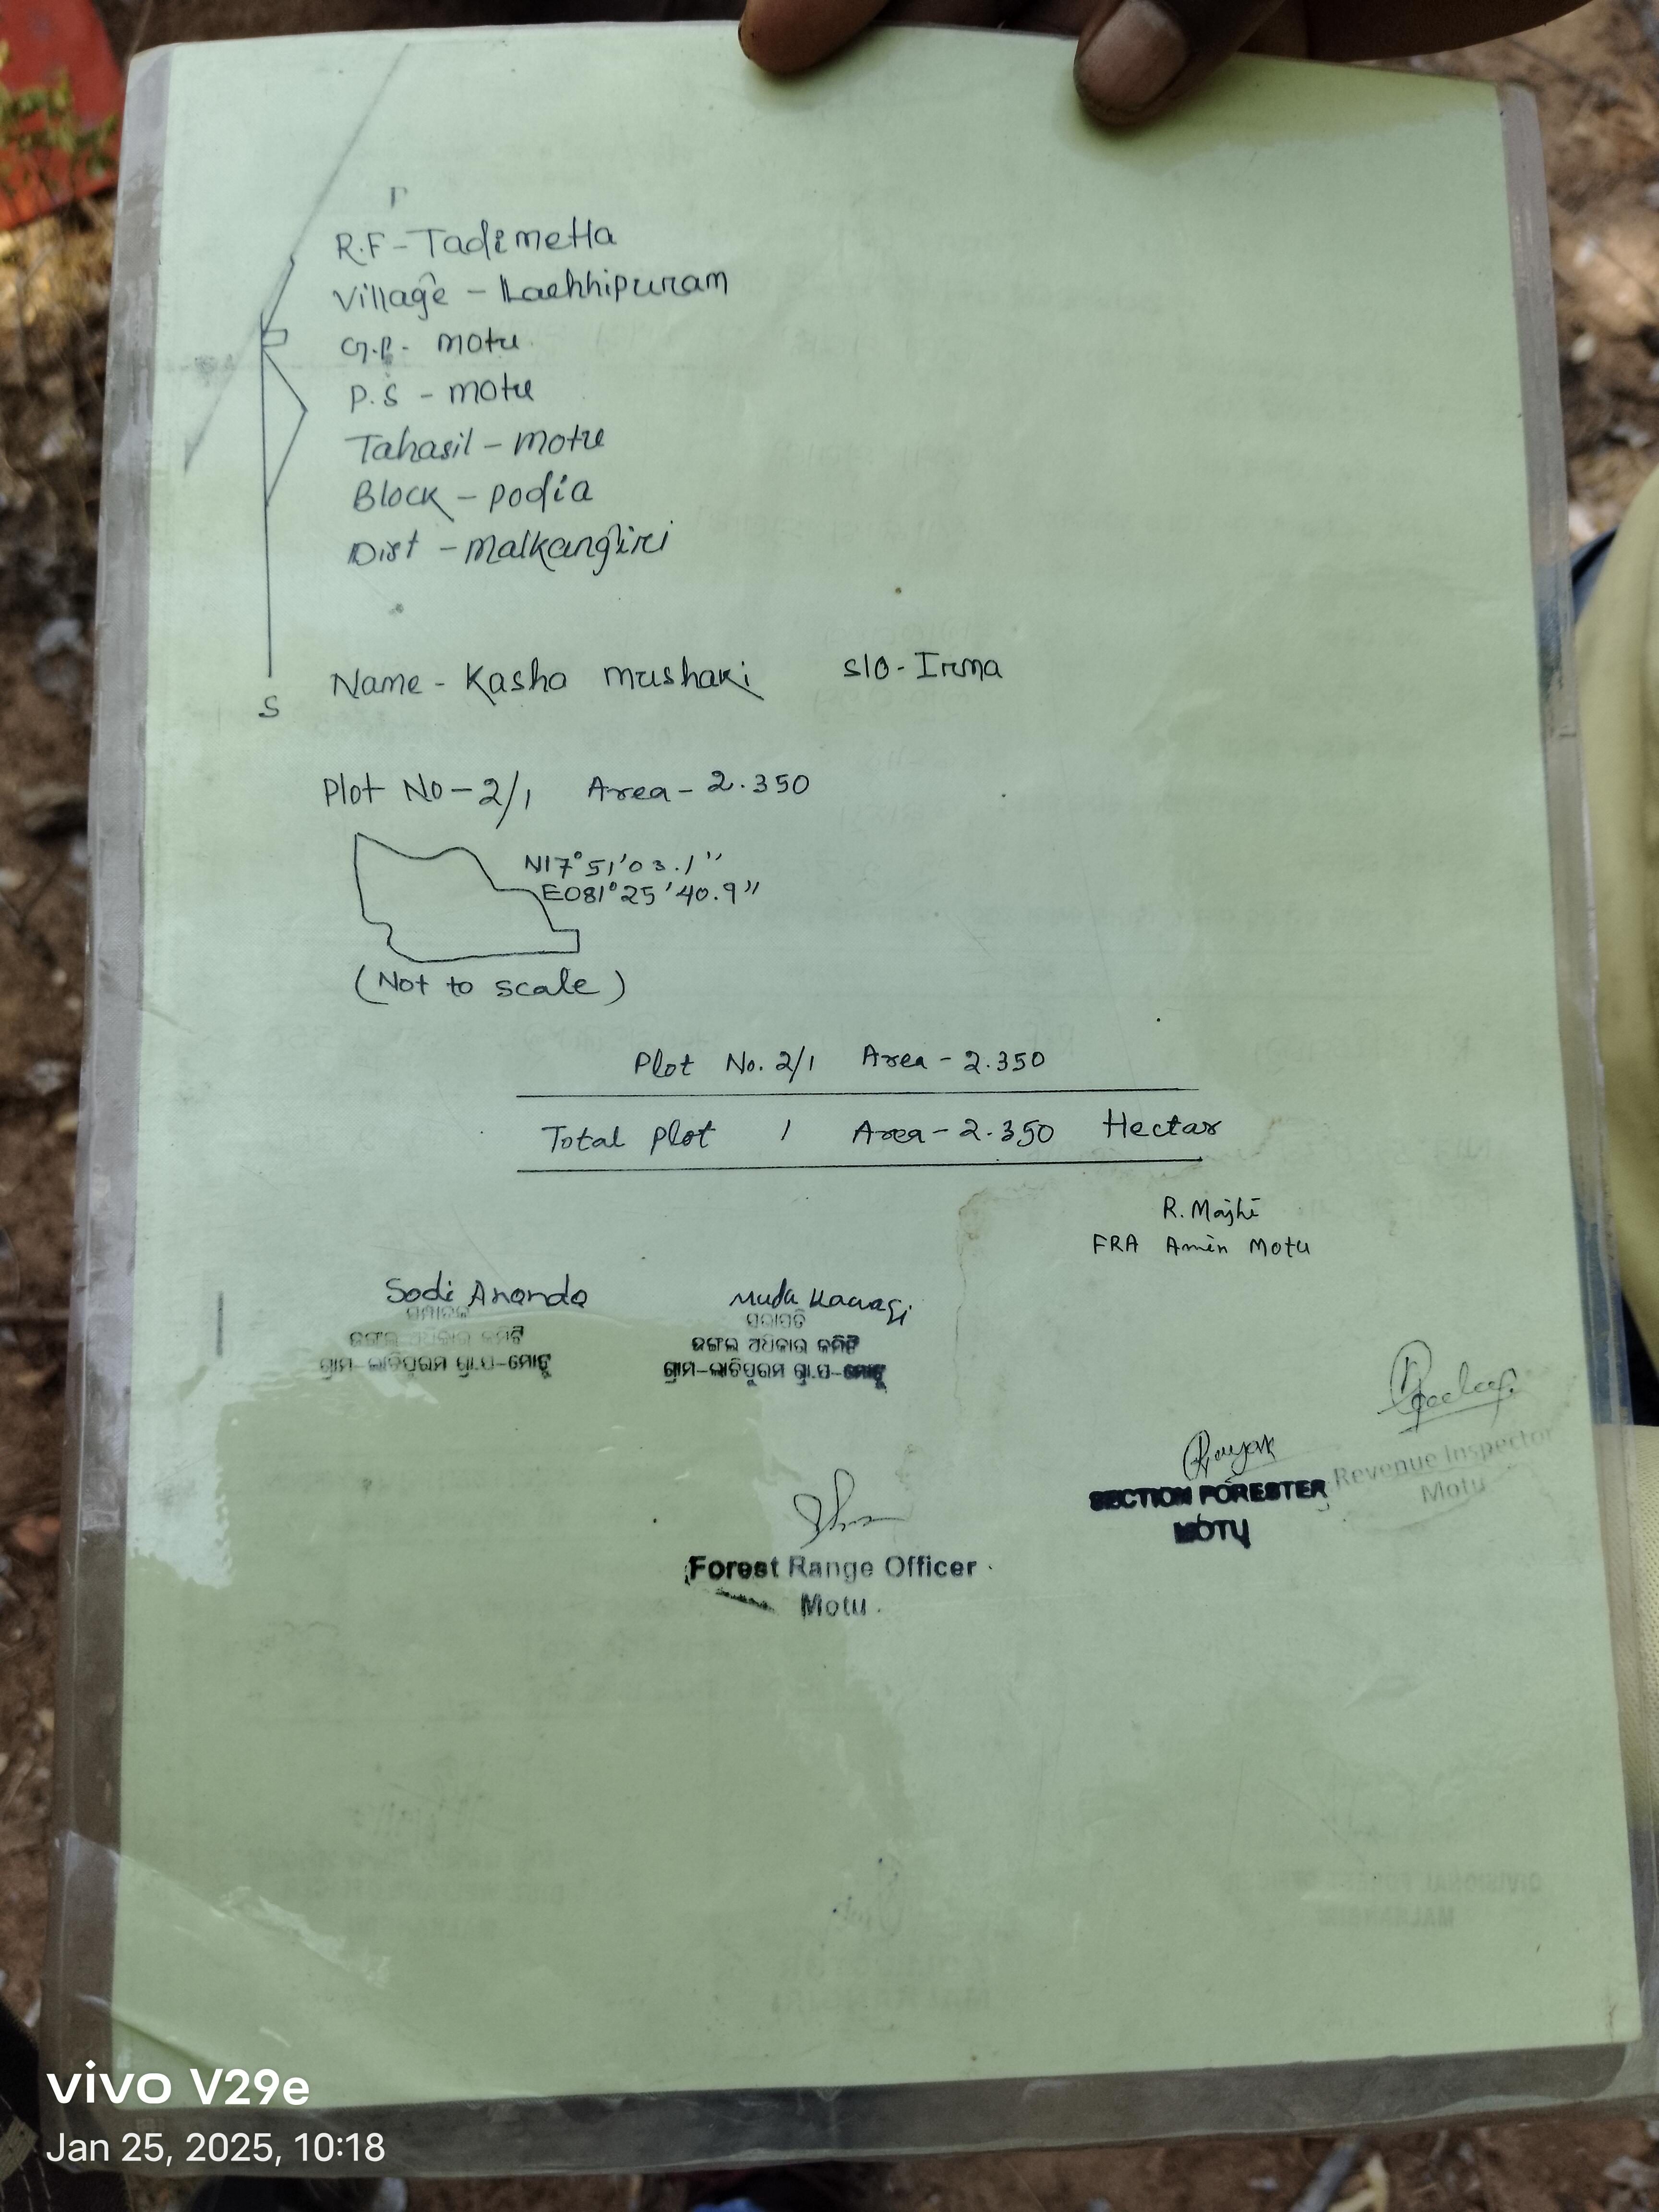 R.F - Tadimetla
Village - Lachhipuram
G.P. - Motu
P.S - Motu
Tahasil - Motu
Block - Podia
Dist - Malkangiri
Name - Kasha Mushaki S/O - Irma
S
Plot No - 2/1 Area - 2.350
N17°51'03.1"
E081°25'40.9"
(Not to scale)
Plot No. 2/1 Area - 2.350
Total Plot 1 Area - 2.350 Hectar
R. Majhi
FRA Amin Motu
Sodi Ananda
Muda
ସଭାପତି
ଜଙ୍ଗଲ ଅଧିକାର କମିଟି
ଜଙ୍ଗଲ ଅଧିକାର କମିଟି
ଗ୍ରାମ-ଲାଚିପୁରମ ଗ୍ରା.ପ-ମୋଟୁ
ଗ୍ରାମ-ଲାଚିପୁରମ ଗ୍ରା.ପ-ମୋଟୁ
Revenue Inspector
Motu
SECTION FORESTER
MOTU
Forest Range Officer
Motu
vivo V29e
Jan 25, 2025, 10:18